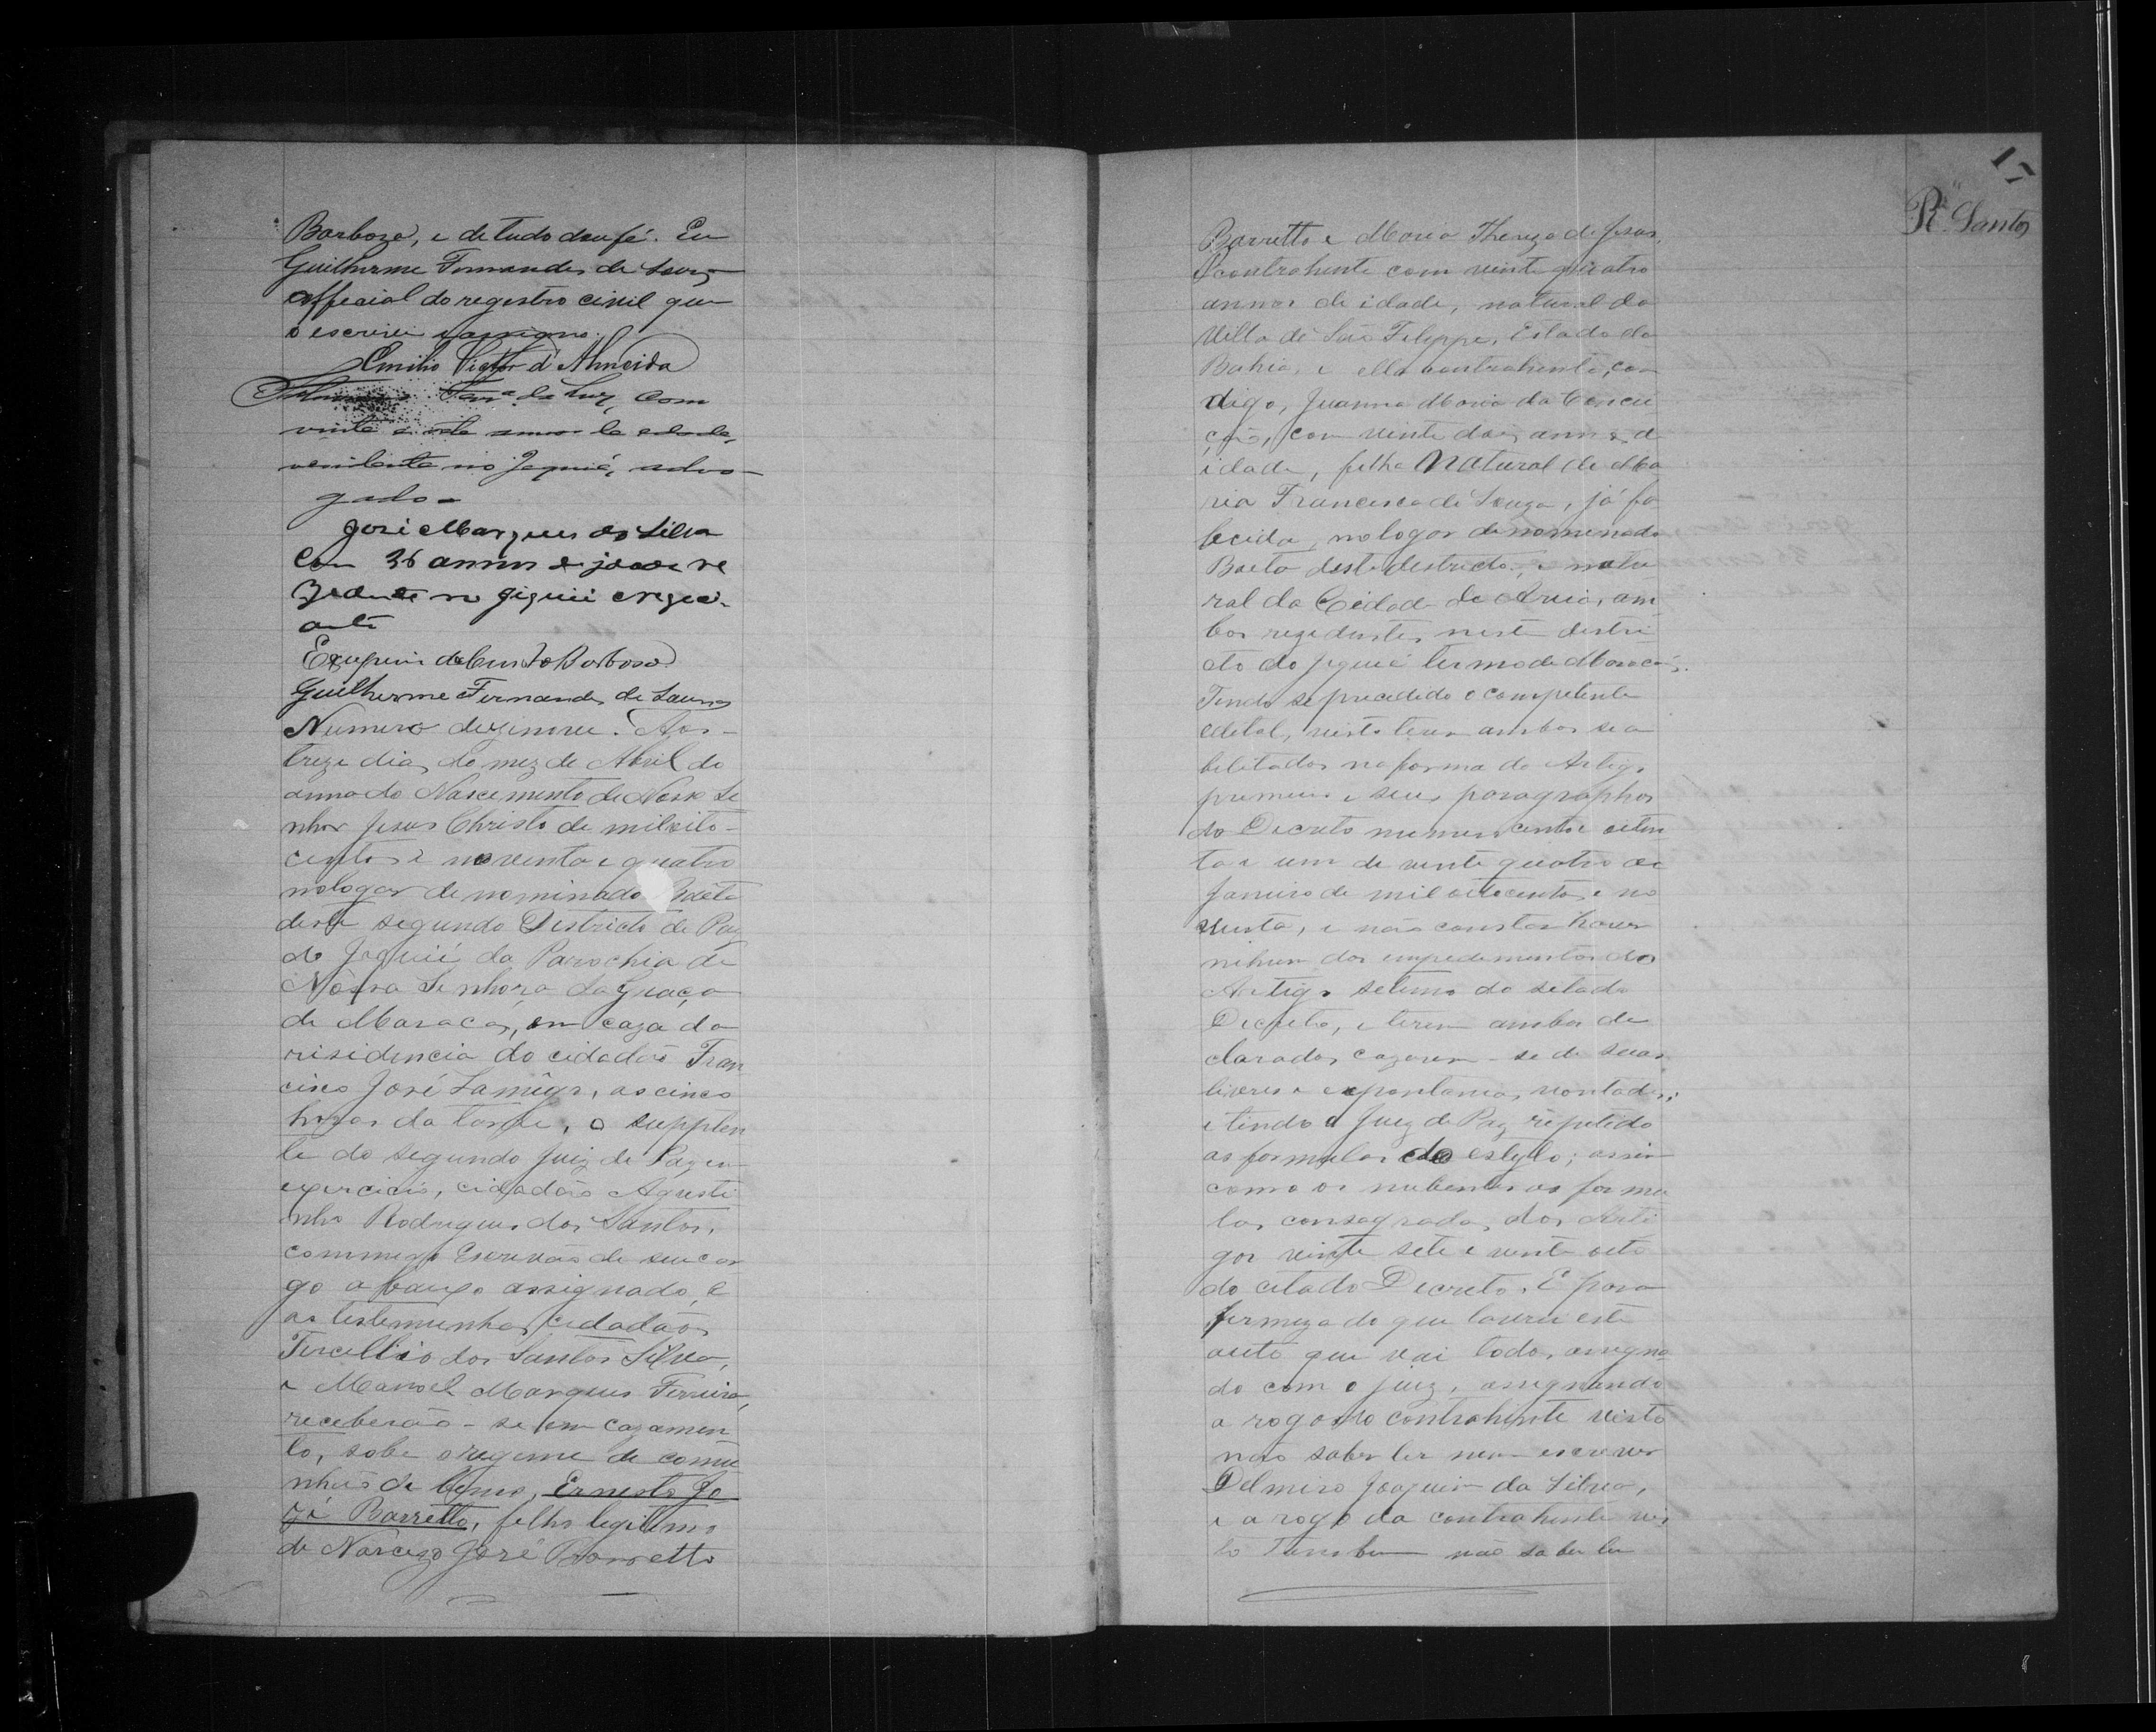 Barboza, e de tudo dou fé. Eu
Guilherme Fernandes de Souza
official do registro civil que
o escrevi e assigno.
Emilio Victor d'Almeida
da Luz, com
vinte e sete annos de edade,
residente no Jequié, advo-
gado-
José Marques da Silva
Com 36 annos de idade re
zedente no Jiquié negoci-
ante
Exuperio Barboso
Guilherme Fernandes de Souza
Numero dezenove. Aos-
treze dias do mez de Abril do
anno do Nascimento de Nosso Se
nhor Jesus Christo de mil oito-
centos e noventa e quatro
no logar denominado Baêta
deste segundo Districto de Paz
do Jequié da Parochia de
Nossa Senhora da Graça
de Maracás, em caza da
risidencia do cidadão Fran
cisco José Lamêgo, as cinco
horas da tarde, o supplen
te do segundo Juiz de Paz em
exercicio, cidadão Agusti
nho Rodrigues dos Santos,
commigo Escrivão de seu car
go abauxo assignado, e
as testemunhas cidadãos
Tercellio dos Santos Silva,
e Manoel Marques Ferreira,
receberão-se em cazamen
to, sobe o regime de comu
nhão de bems, Ernesto Jo
zé Barretto, filho legitimo
de Narcizo José Barretto
17
R. Santos
Barretto e Maria Thereza de Jesus,
O contrahente com vinte quatro
annos de idade, natural da
Villa de São Felippe, Estado da
Bahia, e ella contrahente, con
digo, Juanna Maria da Concei
ção, com vinte dois annos de
idade, filha Natural de Ma
ria Francisca de Souza, já fa
lecida, no logar denominado
Baeta deste destricto, e natu
ral da Cidade de Areia, am
bos rezedentes neste destri
cto do Jequié termo de Maracás.
Tendo se precedido o competente
edital, visto terem ambos se a
belitados na forma do Artigo
premeiro e seus paragraphos
do Decreto numero cento e oiten
ta e um de vente quatro de
Janeiro de mil oitocentos e no
venta, e não constar haver
nihum dos impedimentos do
Artigo setimo do setado
Decreto, e terem ambos de
clarados cazarem-se de suas
livres e expontanias vontades;
e tendo o Juiz de Paz repetido
as formulas do estylo; assim
como os nubentes as formu
las consagradas dos Arti
gos vinte sete e vente oito
do citado Decreto. E para
firmeza do que lavrei este
auto que vai todo, assigna
do com o Juiz, assignando
a rogo do contrahente visto
não saber ler nem escrever
Delmiro Joaquim da Silva,
e a rogo da contrahente vis
to Tambem não saber ler